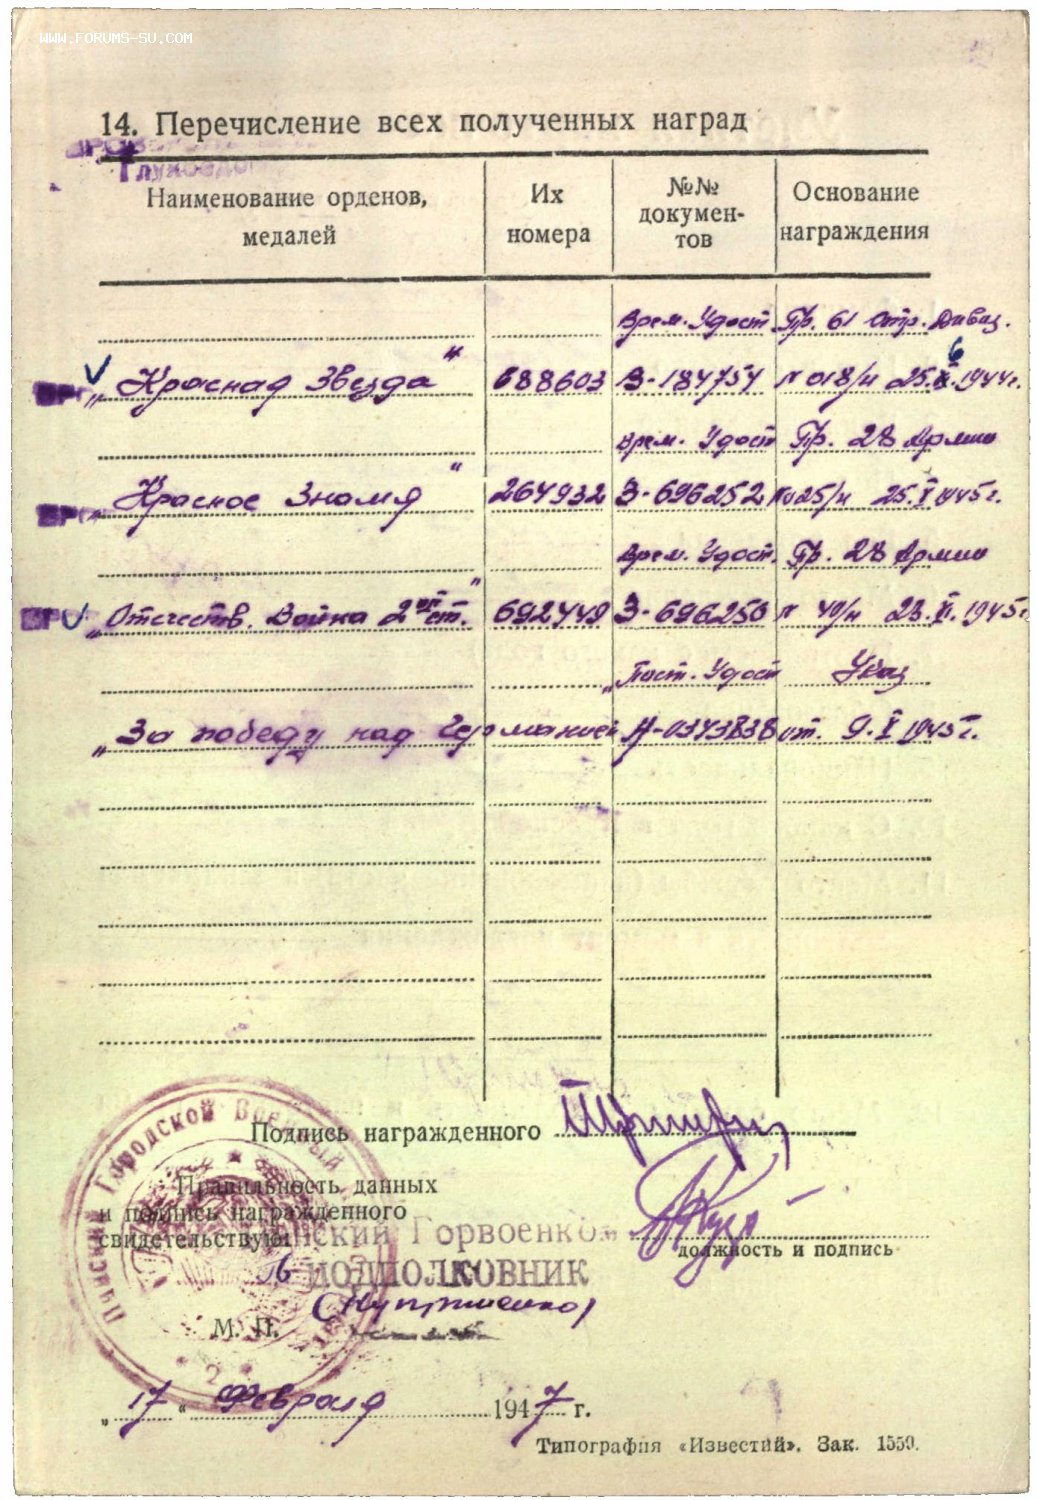 WWW.FORUMS-SU.COM
14. Перечисление всех полученных наград
Наименование орденов, медалей
Их номера
№№ докумен-тов
Основание награждения
Врем. Удост. Пр. 61 Стр. Дивиз.
„Красная Звезда" 688603 З-184754 № 018/н 25. 6 1944 г.
Врем. Удост Пр. 28 Армии
Красное Знамя" 264932 З-696252 № 025/н 25. V 1945 г.
Врем. Удост. Пр. 28 Армии
„Отечеств. Война 2ой ст." 692449 З-696250 № 40/н 23. VI. 1945 г
Пост. Удост Указ
„За победу над Германией А-0343838 от. 9. V 1945 г.
Подпись награжденного
Правильность данных
и подпись награжденного
свидетельствую
Горвоенком
ПОДПОЛКОВНИК
должность и подпись
М. П.
Городской Военный
„ 17 " Февраля 1947 г.
Типография «Известий». Зак. 1550.